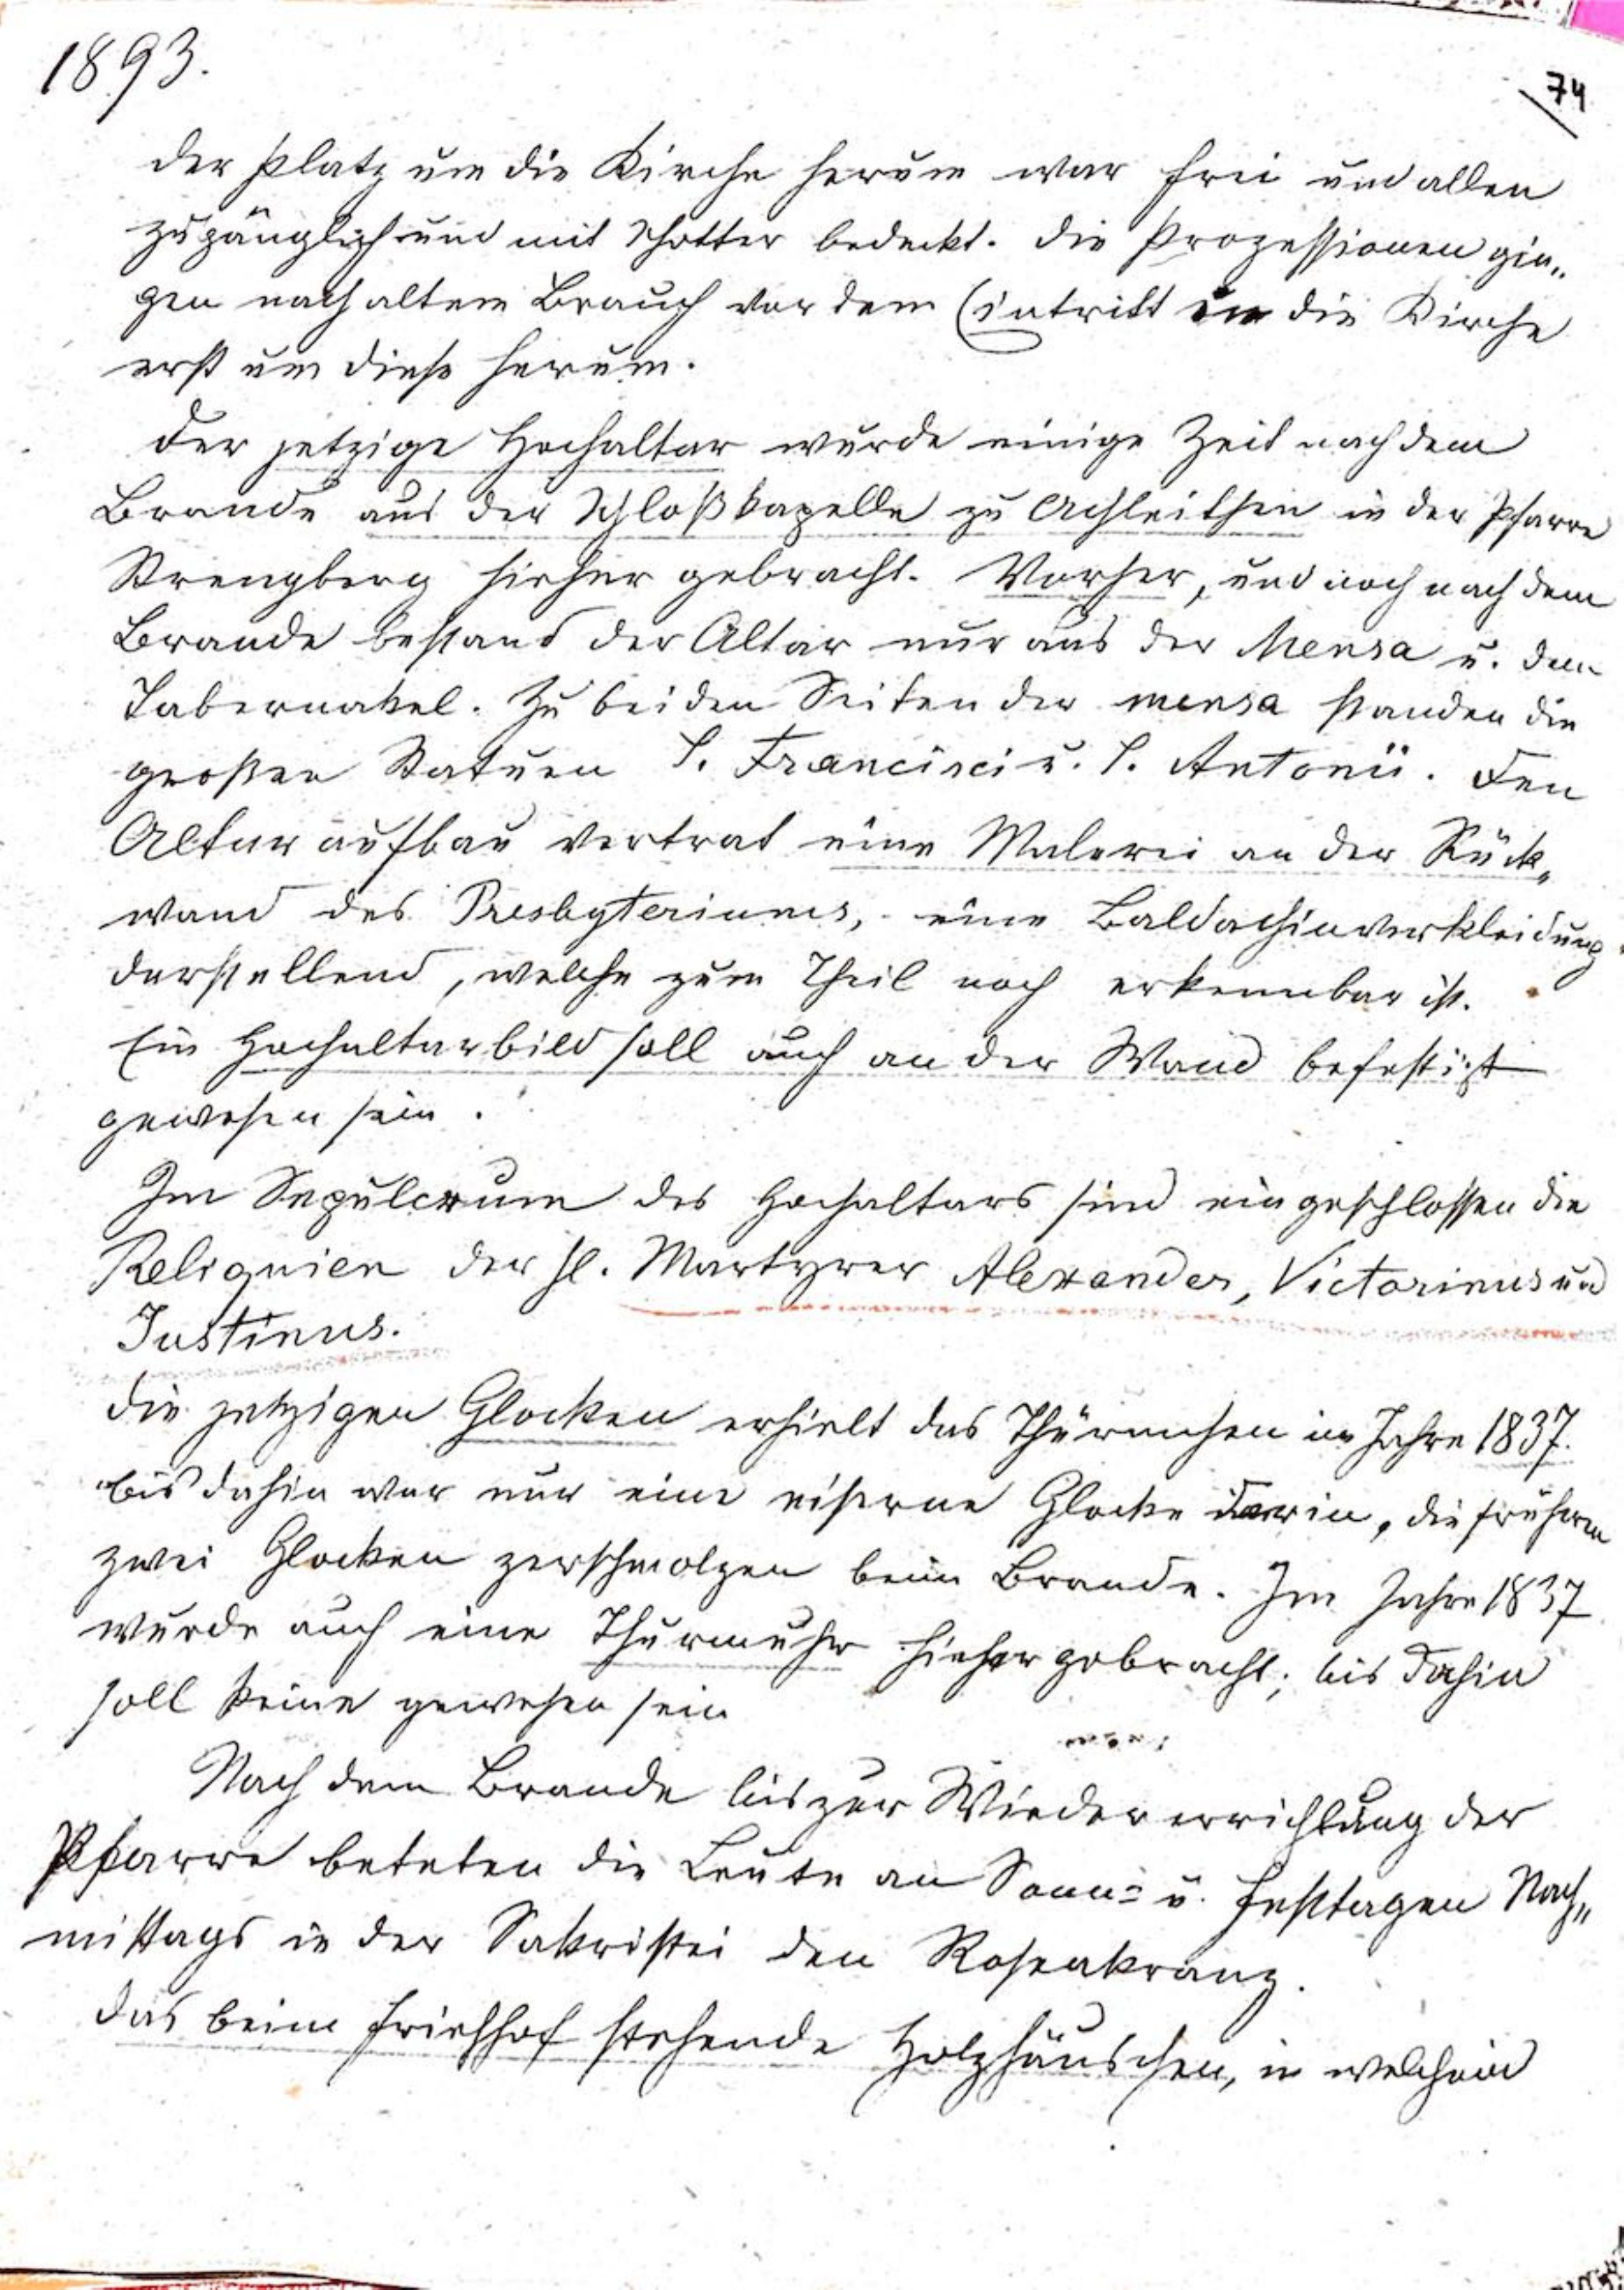 1893.
74
Der Platz um die Kirche herum war frei und allen
zugänglich und mit Schotter bedeckt. Die Prozessionen gin„
gen nach altem Brauch vor dem Eintritt in die Kirche
erst um diese herum.
Der jetzige Hochaltar wurde einige Zeit nach dem
Brande aus der Schloßkapelle zu Achleithen in der Pfarre
Strengberg hieher gebracht. Vorher, und noch nach dem
Brande bestand der Altar nur aus der Mensa u. dem
Tabernakel. Zu beiden Seiten der mensa standen die
großen Statuen S. Francisci u. S. Antonii. Den
Altaraufbau vertrat eine Malerei an der Rück„
wand des Presbyteriums, eine Baldachinverkleidung
darstellend, welche zum Theil noch erkennbar ist.
Ein Hochaltarbild soll auch an der Wand befestigt
gewesen sein.
Im Sepulcrum des Hochaltars sind eingeschlossen die
Reliquien der hl. Martyrer Alexander, Victorinus und
Justinus.
Die jetzigen Glocken erhielt das Thürmchen im Jahre 1837.
bis dahin war nur eine eiserne Glocke darin, die frühern
zwei Glocken zerschmolzen beim Brande. Im Jahre 1837
wurde auch eine Thurmuhr hieher gebracht; bis dahin
soll keine gewesen sein
Nach dem Brande bis zur Wiedererrichtung der
Pfarre beteten die Leute an Sonn= u. Festtagen Nach„
mittags in der Sakristei den Rosenkranz.
Das beim Friedhof stehende Holzhäuschen, in welchem